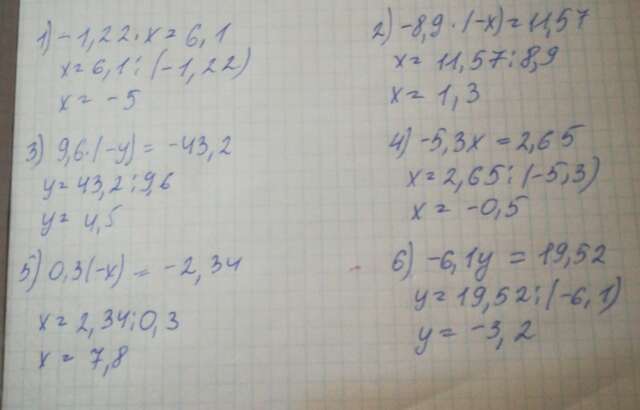 1) -1,22·x = 6,1
x = 6,1 : (-1,22)
x = -5
2) -8,9·(-x) = 11,57
x = 11,57 : 8,9
x = 1,3
3) 9,6·(-y) = -43,2
y = 43,2 : 9,6
y = 4,5
4) -5,3x = 2,65
x = 2,65 : (-5,3)
x = -0,5
5) 0,3(-x) = -2,34
x = 2,34 : 0,3
x = 7,8
6) -6,1y = 19,52
y = 19,52 : (-6,1)
y = -3,2